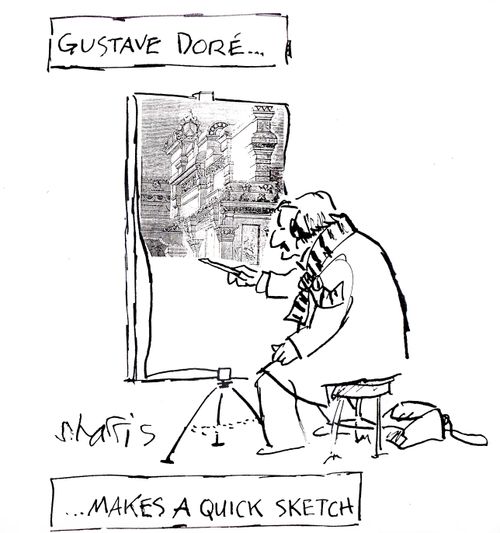 GUSTAVE DORÉ...
S. Harris
...MAKES A QUICK SKETCH